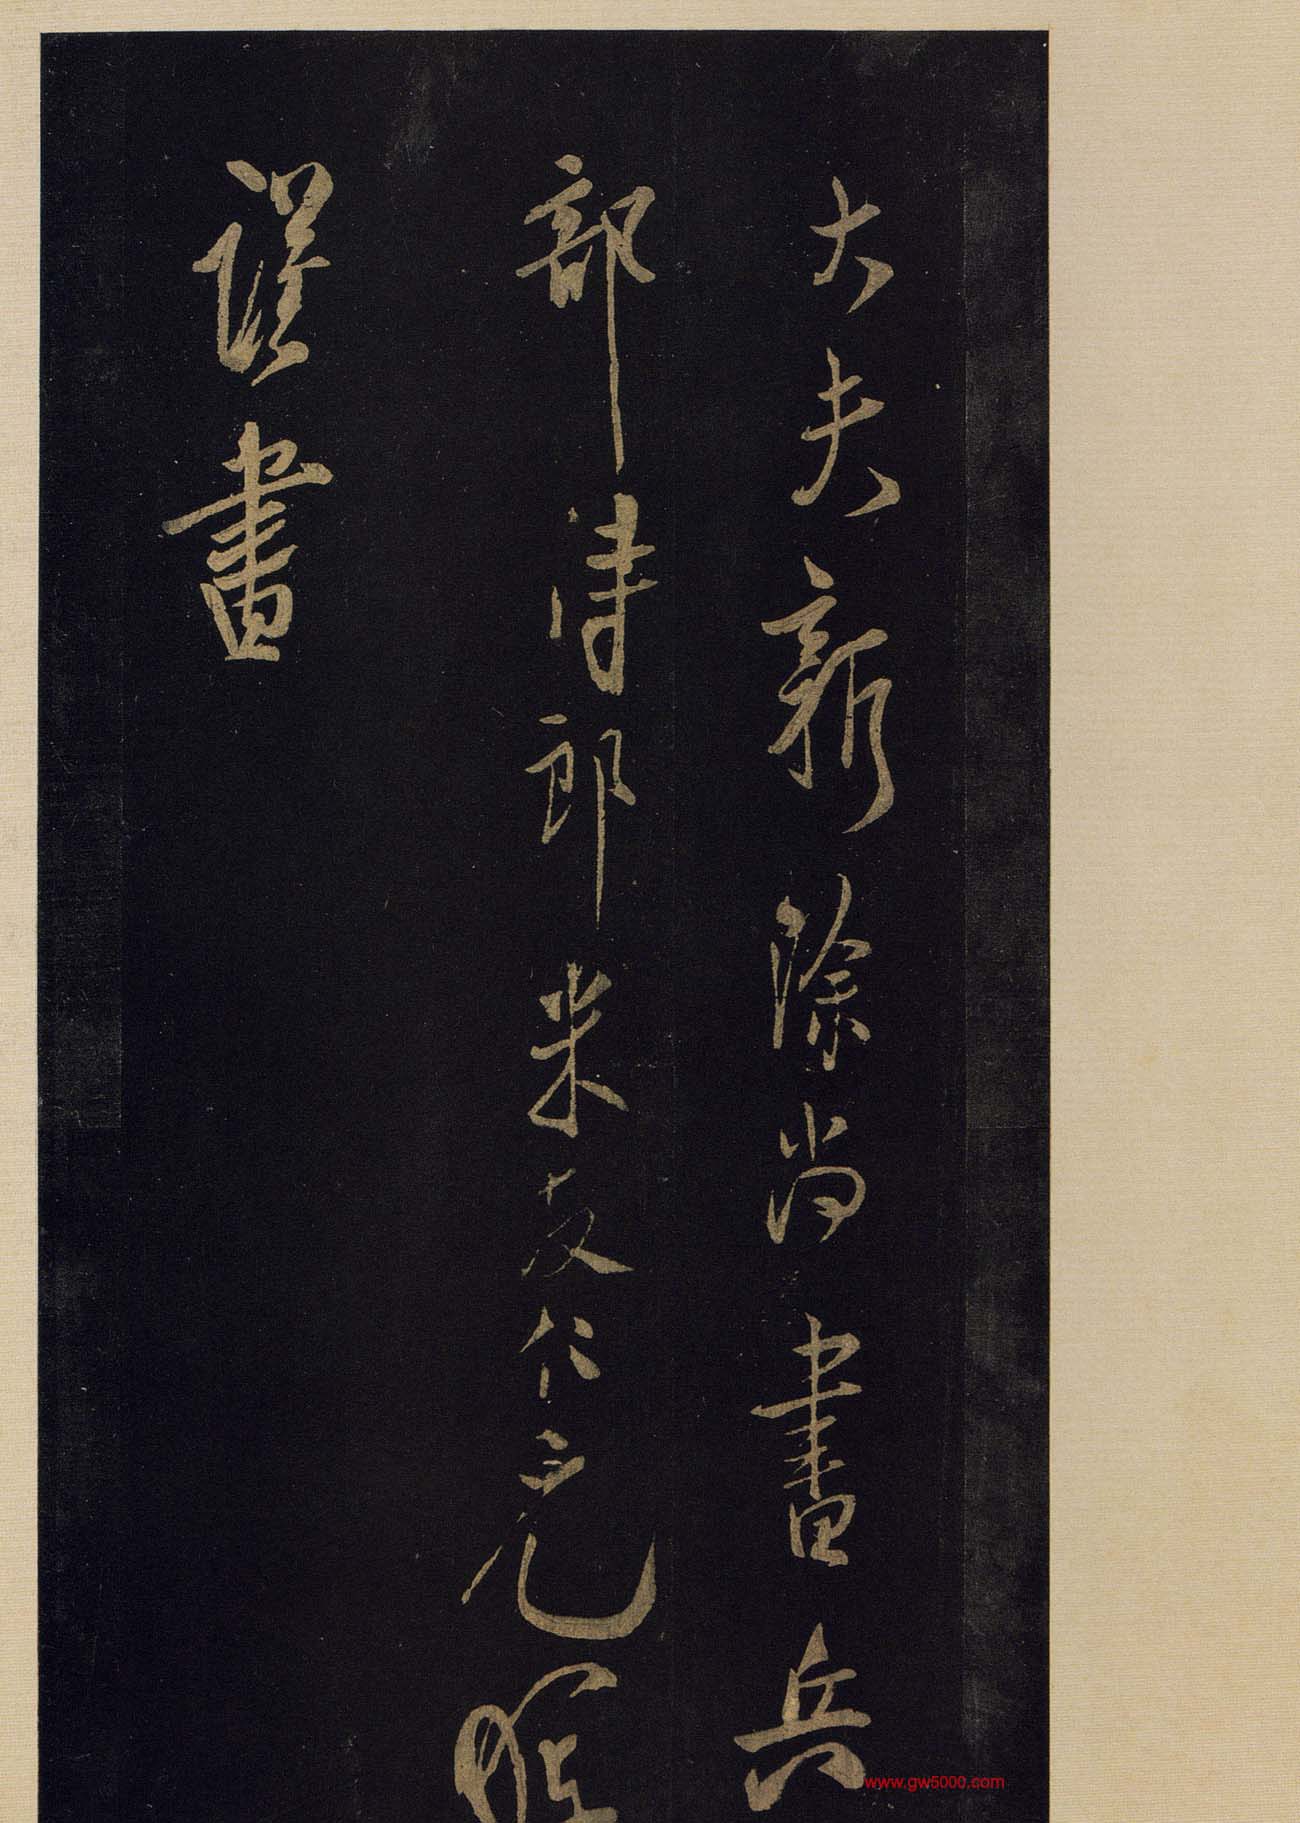 大夫新除尚書兵
部侍郎米友仁元暉
謹書